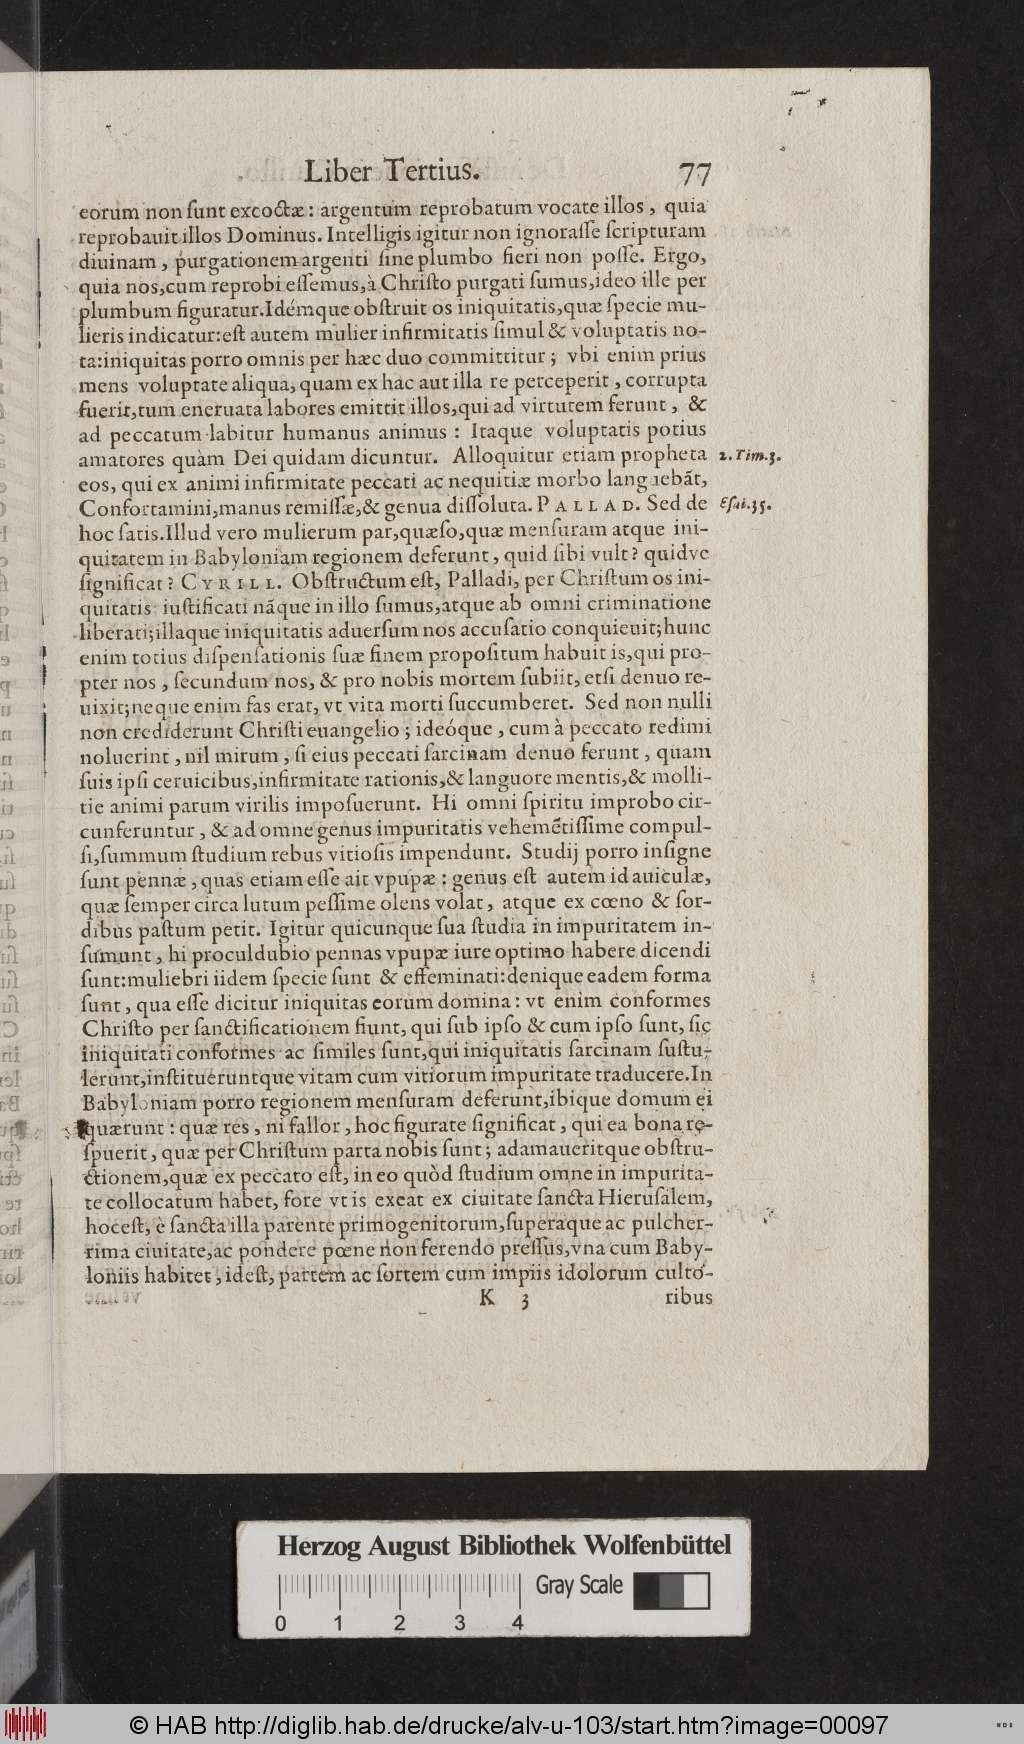 Liber Tertius. 77
eorum non ſunt excoctæ: argentum reprobatum vocate illos, quia
reprobauit illos Dominus. Intelligis igitur non ignoraſſe ſcripturam
diuinam, purgationem argenti ſine plumbo fieri non poſſe. Ergo,
quia nos, cum reprobi eſſemus, à Chriſto purgati ſumus, ideo ille per
plumbum figuratur. Idémque obſtruit os iniquitatis, quæ ſpecie mu-
lieris indicatur: eſt autem mulier infirmitatis ſimul & voluptatis no-
ta: iniquitas porro omnis per hæc duo committitur; vbi enim prius
mens voluptate aliqua, quam ex hac aut illa re perceperit, corrupta
fuerit, tum eneruata labores emittit illos, qui ad virtutem ferunt, &
ad peccatum labitur humanus animus: Itaque voluptatis potius
amatores quàm Dei quidam dicuntur. Alloquitur etiam propheta 2. Tim. 3.
eos, qui ex animi infirmitate peccati ac nequitiæ morbo languebāt,
Confortamini, manus remiſſæ, & genua diſſoluta. PALLAD. Sed de Eſai. 35.
hoc ſatis. Illud vero mulierum par, quæſo, quæ menſuram atque ini-
quitatem in Babyloniam regionem deferunt, quid ſibi vult? quidve
ſignificat? CYRILL. Obſtructum eſt, Palladi, per Chriſtum os ini-
quitatis: iuſtificati nāque in illo ſumus, atque ab omni criminatione
liberati; illaque iniquitatis aduerſum nos accuſatio conquieuit; hunc
enim totius diſpenſationis ſuæ finem propoſitum habuit is, qui pro-
pter nos, ſecundum nos, & pro nobis mortem ſubiit, etſi denuo re-
uixit; neque enim fas erat, vt vita morti ſuccumberet. Sed non nulli
non crediderunt Chriſti euangelio; ideóque, cum à peccato redimi
noluerint, nil mirum, ſi eius peccati ſarcinam denuo ferunt, quam
ſuis ipſi ceruicibus, infirmitate rationis, & languore mentis, & molli-
tie animi parum virilis impoſuerunt. Hi omni ſpiritu improbo cir-
cunferuntur, & ad omne genus impuritatis vehemētiſſime compul-
ſi, ſummum ſtudium rebus vitioſis impendunt. Studij porro inſigne
ſunt pennæ, quas etiam eſſe ait vpupæ: genus eſt autem id auiculæ,
quæ ſemper circa lutum peſſime olens volat, atque ex cœno & ſor-
dibus paſtum petit. Igitur quicunque ſua ſtudia in impuritatem in-
ſumunt, hi proculdubio pennas vpupæ iure optimo habere dicendi
ſunt: muliebri iidem ſpecie ſunt & effeminati: denique eadem forma
ſunt, qua eſſe dicitur iniquitas eorum domina: vt enim conformes
Chriſto per ſanctificationem fiunt, qui ſub ipſo & cum ipſo ſunt, ſic
iniquitati conformes ac ſimiles ſunt, qui iniquitatis ſarcinam ſuſtu-
lerunt, inſtitueruntque vitam cum vitiorum impuritate traducere. In
Babyloniam porro regionem menſuram deferunt, ibique domum ei
quærunt: quæ res, ni fallor, hoc figurate ſignificat, qui ea bona re-
ſpuerit, quæ per Chriſtum parta nobis ſunt; adamaueritque obſtru-
ctionem, quæ ex peccato eſt, in eo quòd ſtudium omne in impurita-
te collocatum habet, fore vt is exeat ex ciuitate ſancta Hieruſalem,
hoc eſt, è ſancta illa parente primogenitorum, ſuperaque ac pulcher-
rima ciuitate, ac pondere pœne non ferendo preſſus, vna cum Baby-
loniis habitet, id eſt, partem ac ſortem cum impiis idolorum culto-
K 3 ribus
Herzog August Bibliothek Wolfenbüttel
Gray Scale
0 1 2 3 4
© HAB http://diglib.hab.de/drucke/alv-u-103/start.htm?image=00097